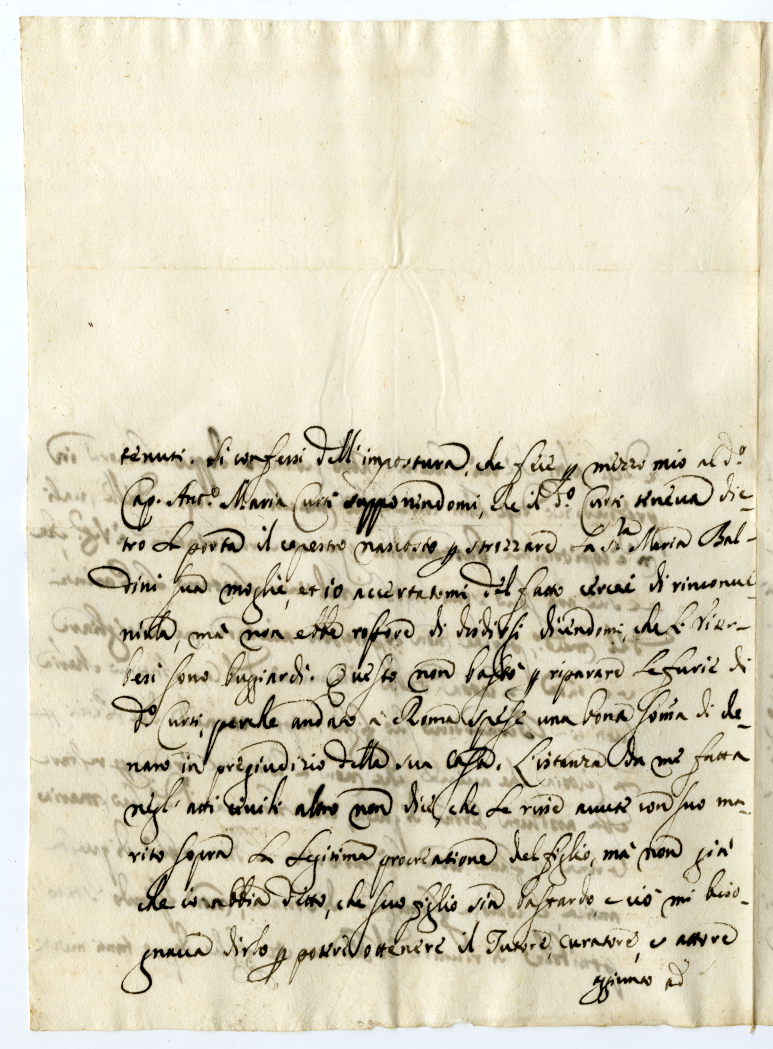 tenuti. Si confessi dell'impostura, che fece p mezzo mio al d.º
Cap. Ant.º Maria Curti supponendomi, che il d.º Curti teneva die-
tro la porta il capestro nascosto p strozzare la S.ra Maria Bal-
dini sua moglie, et io accertatomi del fatto cercai di rinconve-
nirla, mà non ebbe rossore di disdirsi dicendomi, che li Viter-
besi sono buggiardi. Questo non bastò p riparare le furie di
d.º Curti, perche andato à Roma spese una bona soma di de-
naro in pregiudizio della sua casa. L'istanza da me fatta
negl'atti civili altro non dice, che le risse avute con suo ma-
rito sopra la legitima procreatione del figlio, mà non già
che io abbia detto, che suo figlio sia bastardo, e ciò mi biso-
gnava dirlo p poter ottenere il Tutore, curatore, e attore
ggiunto ad